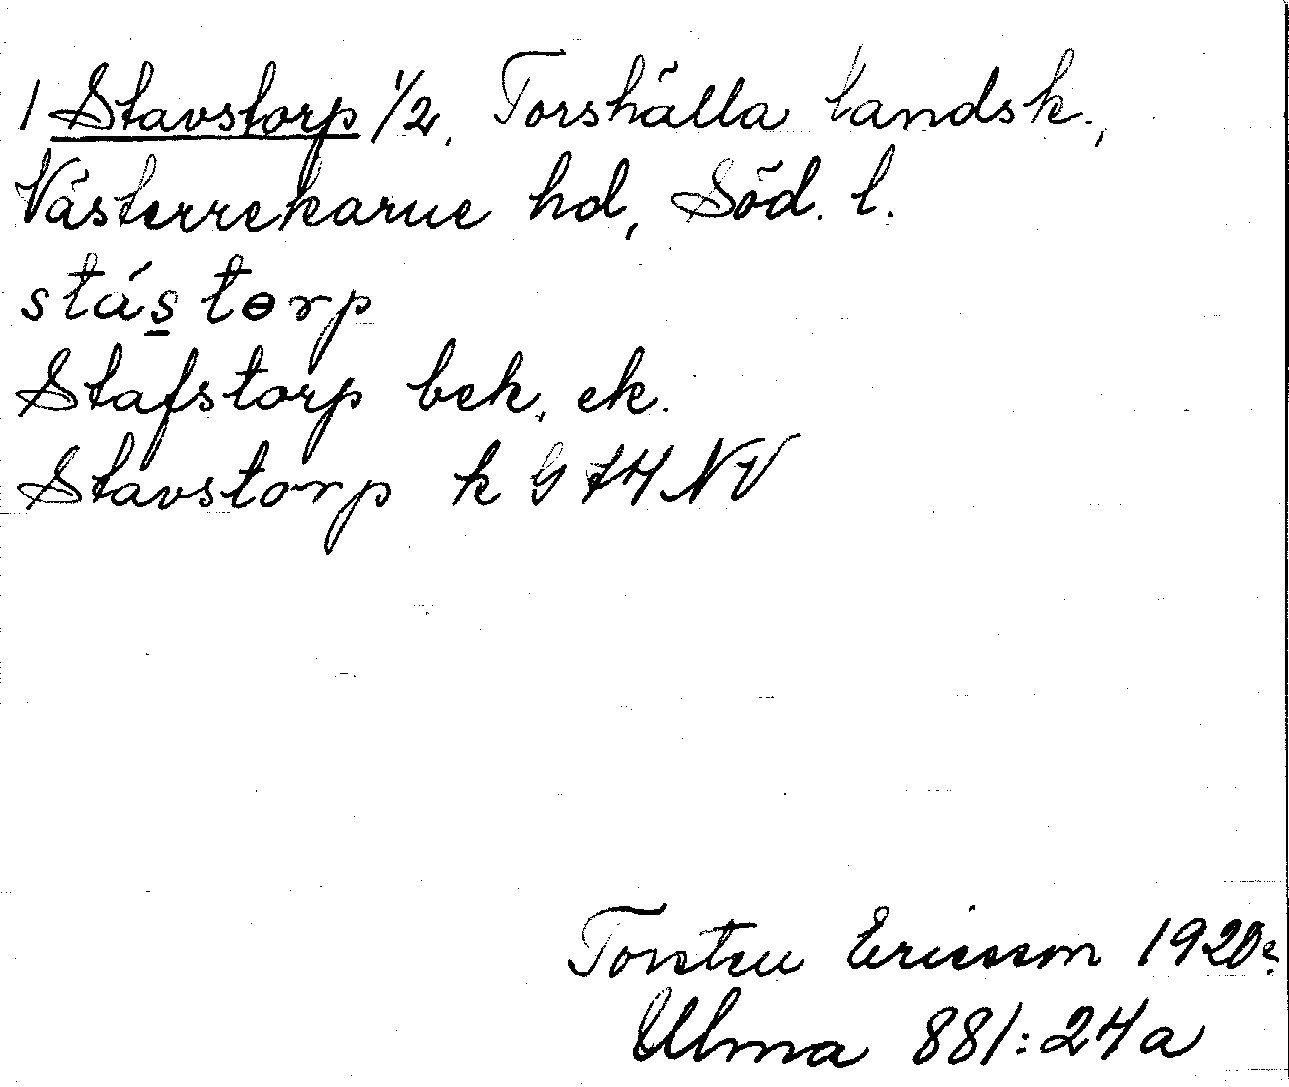 1 Stavstorp 1/2, Torshälla landsk.,
Västerrekarne hd, Söd. l.
stás̲tɵrp
Stafstorp bek, ek.
Stavstorp k G 74 NV
Torsten Ericsson 1920?
Ulma 881:24a